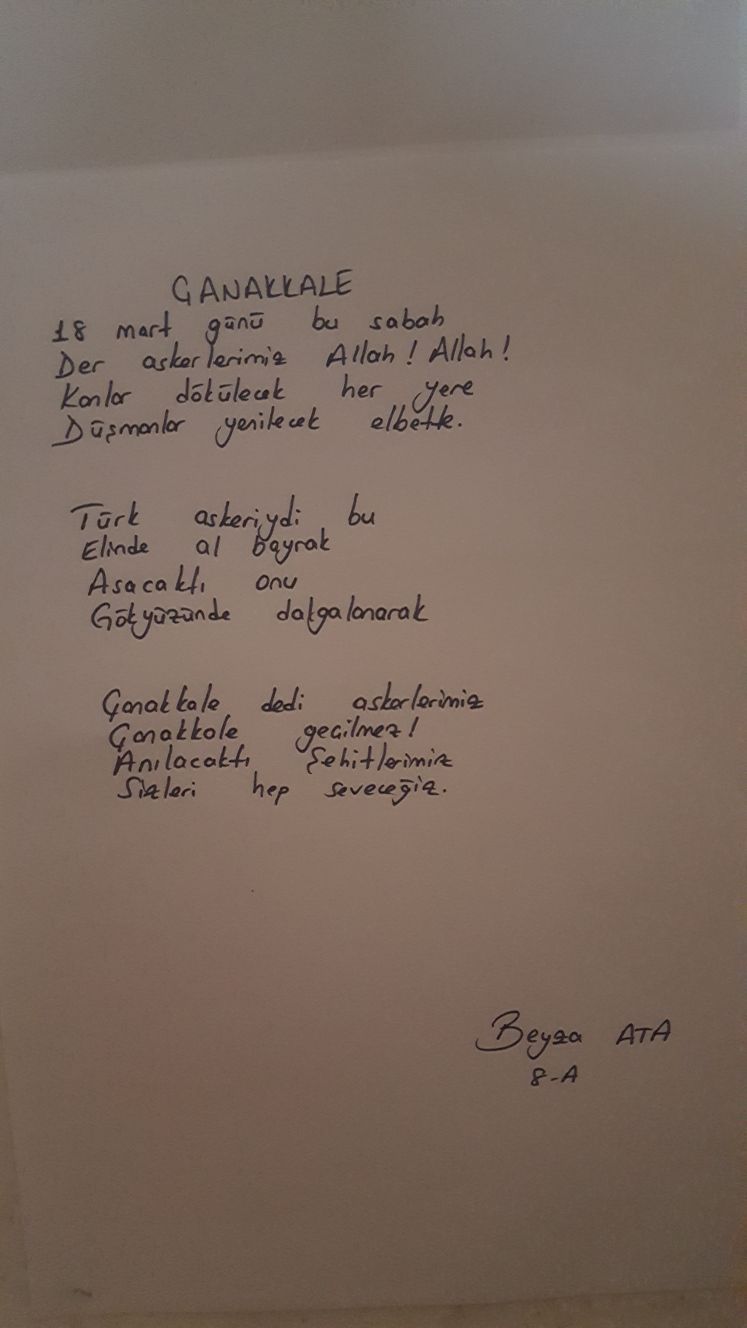 ÇANAKKALE
18 mart günü bu sabah
Der askerlerimiz Allah! Allah!
Kanlar dökülecek her yere
Düşmanlar yenilecek elbette.
Türk askeriydi bu
Elinde al bayrak
Asacaktı onu
Gökyüzünde dalgalanarak
Çanakkale dedi askerlerimiz
Çanakkale geçilmez!
Anılacaktı Şehitlerimiz
Sizleri hep seveceğiz.
Beyza ATA
8-A